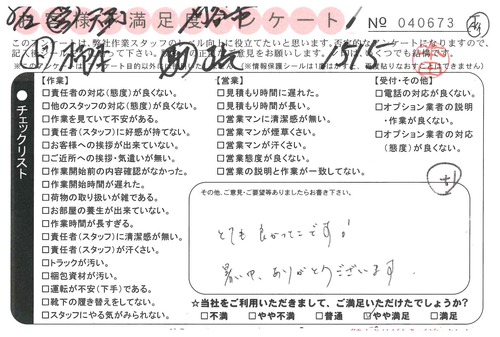 様満足度アンケート!
No 040673
このアンケートは、弊社作業スタッフのレベル向上に役立てたいと思います。
チェックリスト
【作業】
□責任者の対応(態度)が良くない。
□他のスタッフの対応(態度)が良くない。
□作業を見ていて不安がある。
□責任者(スタッフ)に好感が持てない。
□お客様への挨拶が出来ていない。
□ご近所への挨拶・気遣いが無い。
□作業開始前の内容確認がなかった。
□作業開始時間が遅れた。
□荷物の取り扱いが雑である。
□お部屋の養生が出来ていない。
□作業時間が長すぎる。
□責任者(スタッフ)に清潔感が無い。
□責任者(スタッフ)が汗くさい。
□トラックが汚い。
□梱包資材が汚い。
□運転が不安(下手)である。
□靴下の履き替えをしてない。
□スタッフにやる気がみられない。
【営業】
□見積もり時間に遅れた。
□見積もり時間が長い。
□営業マンに清潔感が無い。
□営業マンが煙草くさい。
□営業マンが汗くさい。
□営業態度が良くない。
□営業の説明と作業が一致してない。
【受付・その他】
□電話の対応が良くない。
□オプション業者の説明
・作業が良くない。
□オプション業者の対応
(態度)が良くない。
その他、ご意見・ご要望等ありましたらお書き下さい。
とても良かったです!
暑い中、ありがとうございます
☆当社をご利用いただきまして、ご満足いただけたでしょうか?
□不満 □やや不満 □普通 ☑やや満足 □満足